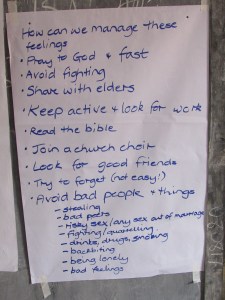 How can we manage these
feelings
• Pray to God & fast
• Avoid fighting
• Share with elders
• Keep active & look for work
• Read the bible
• Join a church choir
• Look for good friends
• Try to forget (not easy!)
• Avoid bad people & things
– stealing
– bad peers
– risky sex/any sex out of marriage
– fighting/quarrelling
– drinks, drugs, smoking
– backbiting
– being lonely
– bad feelings